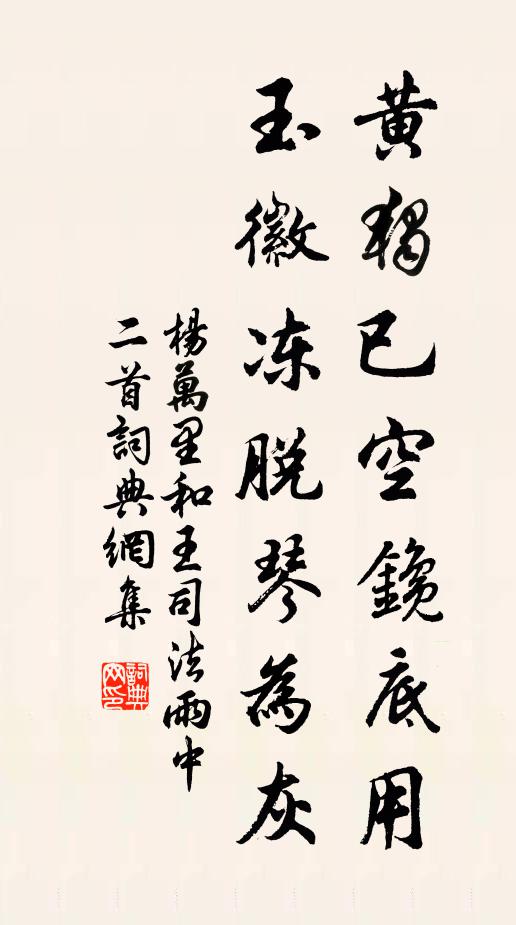 黄独已空鑱底用
玉徽冻脱琴為灰
楊萬里和王司法雨中
二首詞典網集
詞典
网印